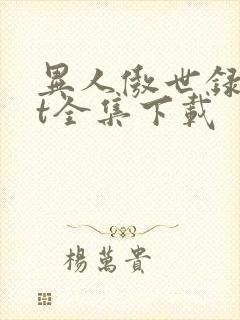 異人傲世録
t全集下載
楊萬貴